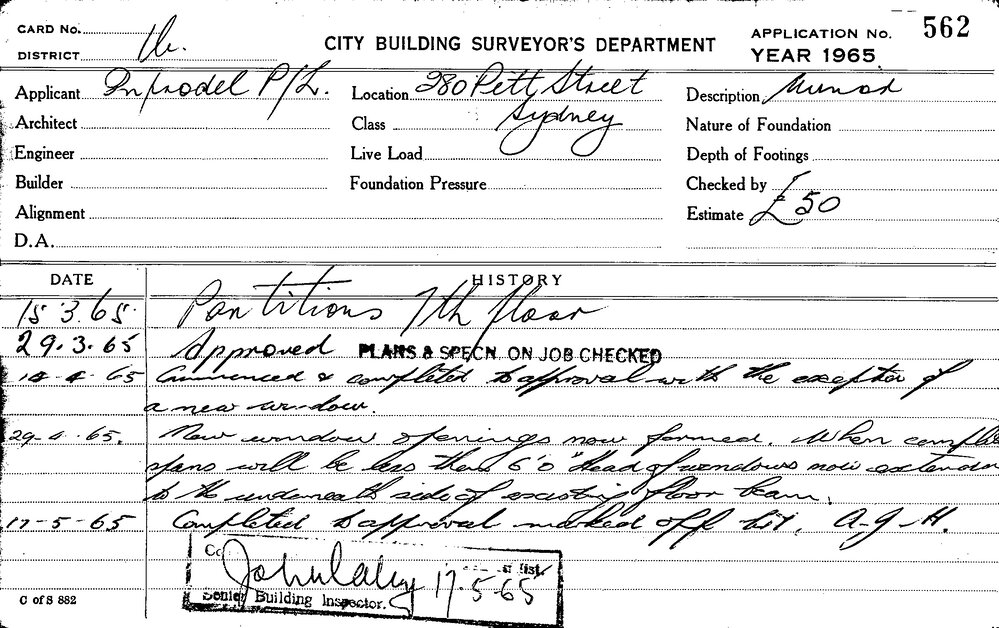 562
CARD No.
DISTRICT
CITY BUILDING SURVEYOR'S DEPARTMENT
APPLICATION No.
YEAR 1965
Applicant P/L.
Location 280 Pitt Street
Sydney
Description
Architect
Class
Nature of Foundation
Engineer
Live Load
Depth of Footings
Builder
Foundation Pressure
Checked by
Alignment
Estimate £50
D.A.
DATE HISTORY
15.3.65. Partitions 7th floor
29.3.65 Approved PLANS & SPECN. ON JOB CHECKED
4.65 Commenced & completed to approval with the exception of
a new window.
29-4-65. New window openings now formed. When
spans will be less than 6'0" Head of windows now
to the underneath side of existing floor beam.
17-5-65 Completed to approval marked off list. A-J-H.
17.5.65
list
Senior Building Inspector.
C of S 882